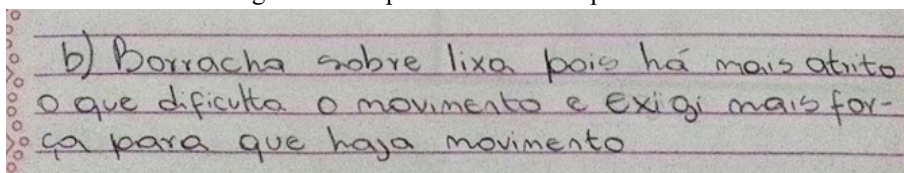 b) Borracha sobre lixa pois há mais atrito
o que dificulta o movimento e exigi mais for-
ça para que haja movimento